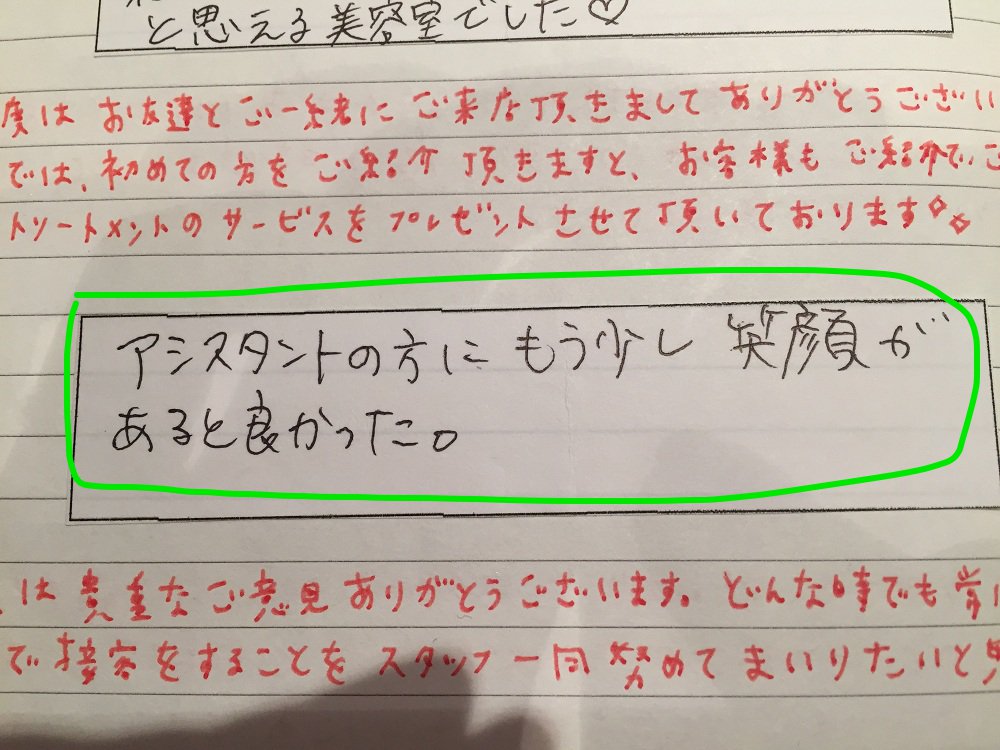 と思える美容室でした♡
度は お友達と ご一緒に ご来店頂きまして ありがとうござい
では、初めての方を ご紹介 頂きますと、お客様も ご紹介でご
トリートメントの サービスを プレゼント させて 頂いております
アシスタントの方に もう少し 笑顔が
あると良かった。
は 貴重な ご意見 ありがとう ございます。どんな時でも 常に
で 接客を することを スタッフ 一同 努めて まいりたいと思